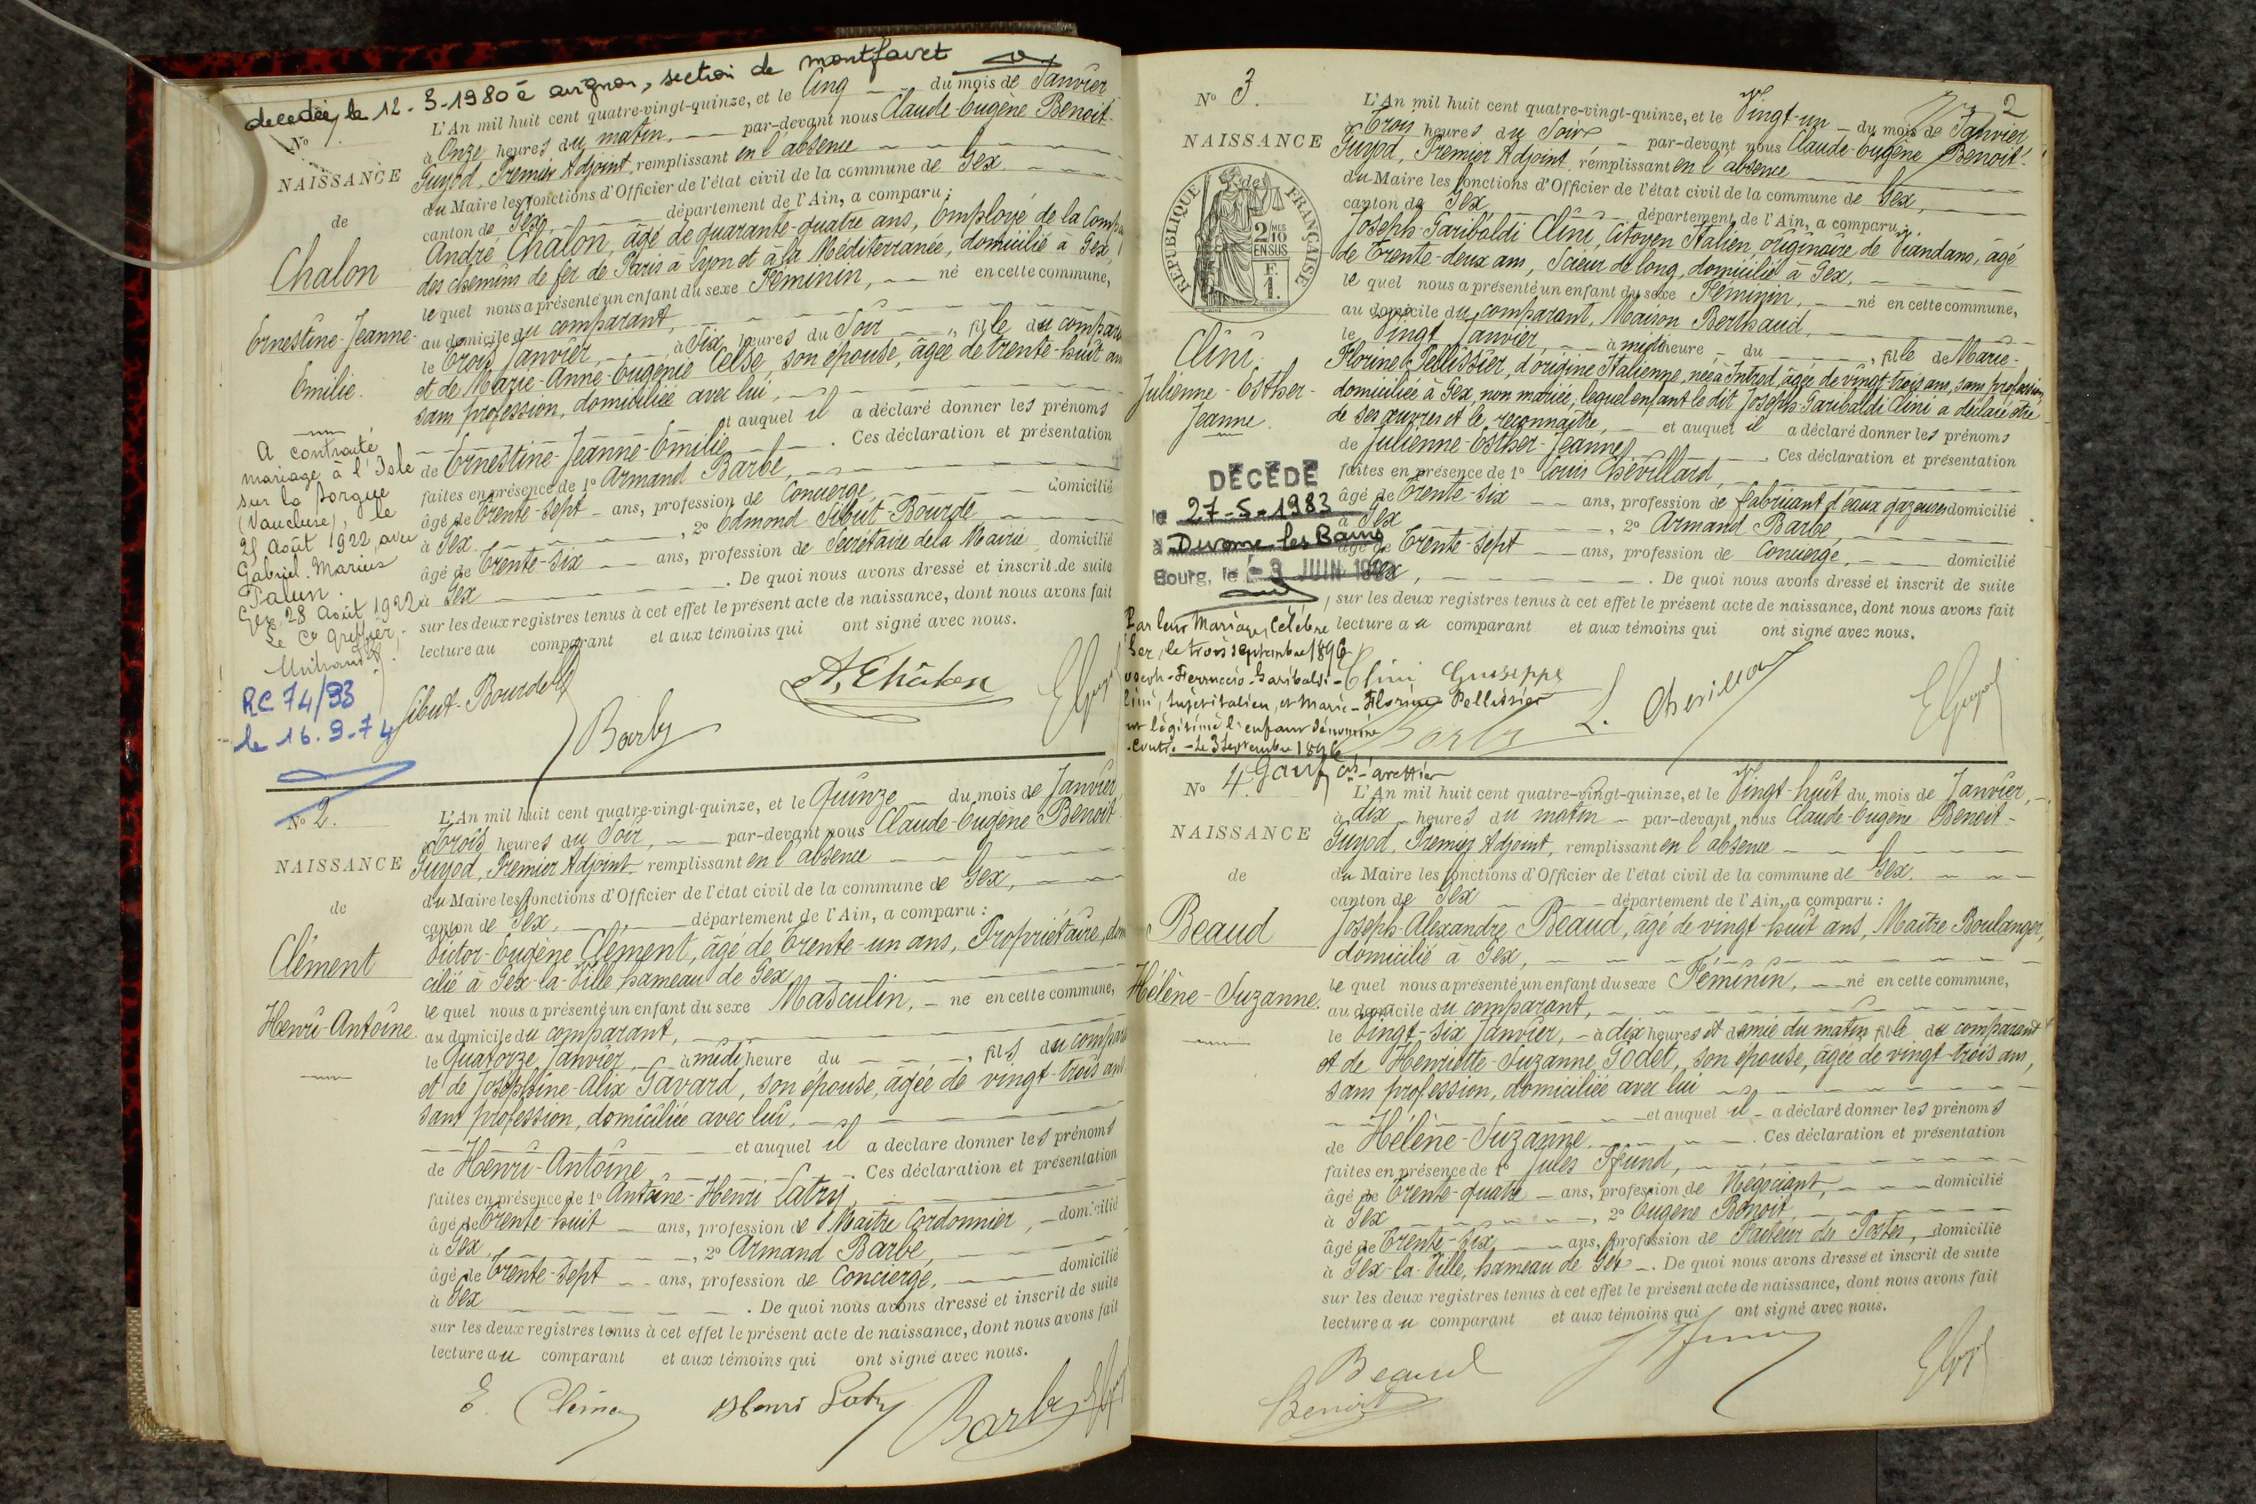 decedée, le 12-3-1980 à avignon, section de montfavet
N° 1.
NAISSANCE
de
Chalon
Ernestine-Jeanne-
Emilie.
A contracté
mariage à l'Isle
sur la Sorgue
(Vaucluse), le
21 Août 1922, avec
Gabriel-Marius
Palun.
Gex, 28 Août 1922
Le Cs Greffier,
RC 74/93
le 16.9.74
L'An mil huit cent quatre-vingt-quinze, et le Cinq du mois de Janvier
à Onze heures du matin, par-devant nous Claude-Eugène Benoit-
Guyod, Premier Adjoint, remplissant en l'absence
du Maire les fonctions d'Officier de l'état civil de la commune de Gex
canton de Gex, département de l'Ain, a comparu :
André Chalon, âgé de quarante-quatre ans, Employé de la Comp
des chemins de fer de Paris à Lyon et à la Méditerranée, domicilié à Gex,
le quel nous a présenté un enfant du sexe Féminin, né en cette commune,
au domicile du comparant,
le Trois Janvier, à Six heures du Soir, fille du compara
et de Marie-Anne-Eugénie Celse, son épouse, âgée de trente-huit an
sans profession, domiciliée avec lui,
et auquel il a déclaré donner les prénoms
de Ernestine-Jeanne-Emilie. Ces déclaration et présentation
faites en présence de 1° Armand Barbe,
âgé de Trente-sept ans, profession de Concierge, domicilié
à Gex, 2° Edmond Sibut-Bourde
âgé de Trente-six ans, profession de Secrétaire de la Mairie domicilié
à Gex. De quoi nous avons dressé et inscrit de suite
sur les deux registres tenus à cet effet le présent acte de naissance, dont nous avons fait
lecture au comparant et aux témoins qui ont signé avec nous.
Sibut-Bourde
Barbe
A. Châlon
EGuyod
N° 2.
NAISSANCE
de
Clément
Henri-Antoine
L'An mil huit cent quatre-vingt-quinze, et le Quinze du mois de Janvier
à Trois heures du Soir, par-devant nous Claude-Eugène Benoit
Guyod, Premier Adjoint remplissant en l'absence
du Maire les fonctions d'Officier de l'état civil de la commune de Gex,
canton de Gex, département de l'Ain, a comparu :
Victor-Eugène Clément, âgé de Trente-un ans, Propriétaire, dom
cilié à Gex-la-Ville hameau de Gex
le quel nous a présenté un enfant du sexe Masculin, né en cette commune,
au domicile du comparant,
le Quatorze Janvier, à midi heure du, fils du compara
et de Joséphine-Alix Gavard, son épouse, âgée de vingt-trois ans
sans profession, domiciliée avec lui,
et auquel il a déclaré donner les prénoms
de Henri-Antoine. Ces déclaration et présentation
faites en présence de 1° Antoine-Henri Latry,
âgé de Trente-huit ans, profession de Maître Cordonnier, domicilié
à Gex, 2° Armand Barbe,
âgé de Trente-sept ans, profession de Concierge, domicilié
à Gex. De quoi nous avons dressé et inscrit de suite
sur les deux registres tenus à cet effet le présent acte de naissance, dont nous avons fait
lecture au comparant et aux témoins qui ont signé avec nous.
E. Clément
Henri Latry
Barbe
2
N° 3.
NAISSANCE
de
RÉPUBLIQUE FRANÇAISE
2/10 MES EN SUS
F. 1.
Clini
Julienne-Esther-
Jeanne.
DÉCÉDÉ
le 27-5-1983
à Divonne les Bains
Bourg, le -3 JUIN 1983
Par leur Mariage, célébré
Gex, le trois septembre 1896
Joseph-Ferruccio-Garibaldi-
Clini, sujet italien, et Marie-Florine Pellissier
ont légitimé l'enfant dénommé
ci-contre. - Le 3 Septembre 1896
L'An mil huit cent quatre-vingt-quinze, et le Vingt-un du mois de Janvier
à Trois heures du Soir, par-devant nous Claude-Eugène Benoit-
Guyod, Premier Adjoint remplissant en l'absence
du Maire les fonctions d'Officier de l'état civil de la commune de Gex,
canton de Gex département de l'Ain, a comparu :
Joseph-Garibaldi Clini, Citoyen Italien, originaire de Viandano, âgé
de Trente-deux ans, Scieur de long, domicilié à Gex,
le quel nous a présenté un enfant du sexe Féminin, né en cette commune,
au domicile du comparant, Maison Berthaud,
le Vingt Janvier, à midi heure du, fille de Marie-
Florine Pellissier, d'origine Italienne, née à Introd, âgée de vingt-trois ans, sans profession,
domiciliée à Gex, non mariée, lequel enfant le dit Joseph-Garibaldi Clini a déclaré être
de ses œuvres et le reconnaître, et auquel il a déclaré donner les prénoms
de Julienne-Esther-Jeanne. Ces déclaration et présentation
faites en présence de 1° Louis Chevillard,
âgé de Trente-six ans, profession de fabricant d'eaux gazeuses domicilié
à Gex, 2° Armand Barbe,
âgé de Trente-sept ans, profession de Concierge, domicilié
à Gex. De quoi nous avons dressé et inscrit de suite
sur les deux registres tenus à cet effet le présent acte de naissance, dont nous avons fait
lecture au comparant et aux témoins qui ont signé avec nous.
Clini Guiseppe
Barbe
L. Chevillard
EGuyod
N° 4.
NAISSANCE
de
Beaud
Hélène-Suzanne.
L'An mil huit cent quatre-vingt-quinze, et le Vingt-huit du mois de Janvier,
à dix heures du matin par-devant nous Claude-Eugène Benoit-
Guyod, Premier Adjoint, remplissant en l'absence
du Maire les fonctions d'Officier de l'état civil de la commune de Gex.
canton de Gex département de l'Ain, a comparu :
Joseph-Alexandre Beaud, âgé de vingt-huit ans, Maître Boulanger,
domicilié à Gex,
le quel nous a présenté un enfant du sexe Féminin, né en cette commune,
au domicile du comparant,
le Vingt-six Janvier, à dix heures et demie du matin fille du comparant
et de Henriette-Suzanne Godet, son épouse, âgée de vingt-trois ans,
sans profession, domiciliée avec lui
et auquel il a déclaré donner les prénoms
de Hélène-Suzanne. Ces déclaration et présentation
faites en présence de 1° Jules Pfund,
âgé de Trente-quatre ans, profession de Négociant, domicilié
à Gex, 2° Eugène Benoit,
âgé de Trente-six ans, profession de Facteur des Postes, domicilié
à Gex-la-Ville, hameau de Gex. De quoi nous avons dressé et inscrit de suite
sur les deux registres tenus à cet effet le présent acte de naissance, dont nous avons fait
lecture au comparant et aux témoins qui ont signé avec nous.
Beaud
Benoit
EGuyod